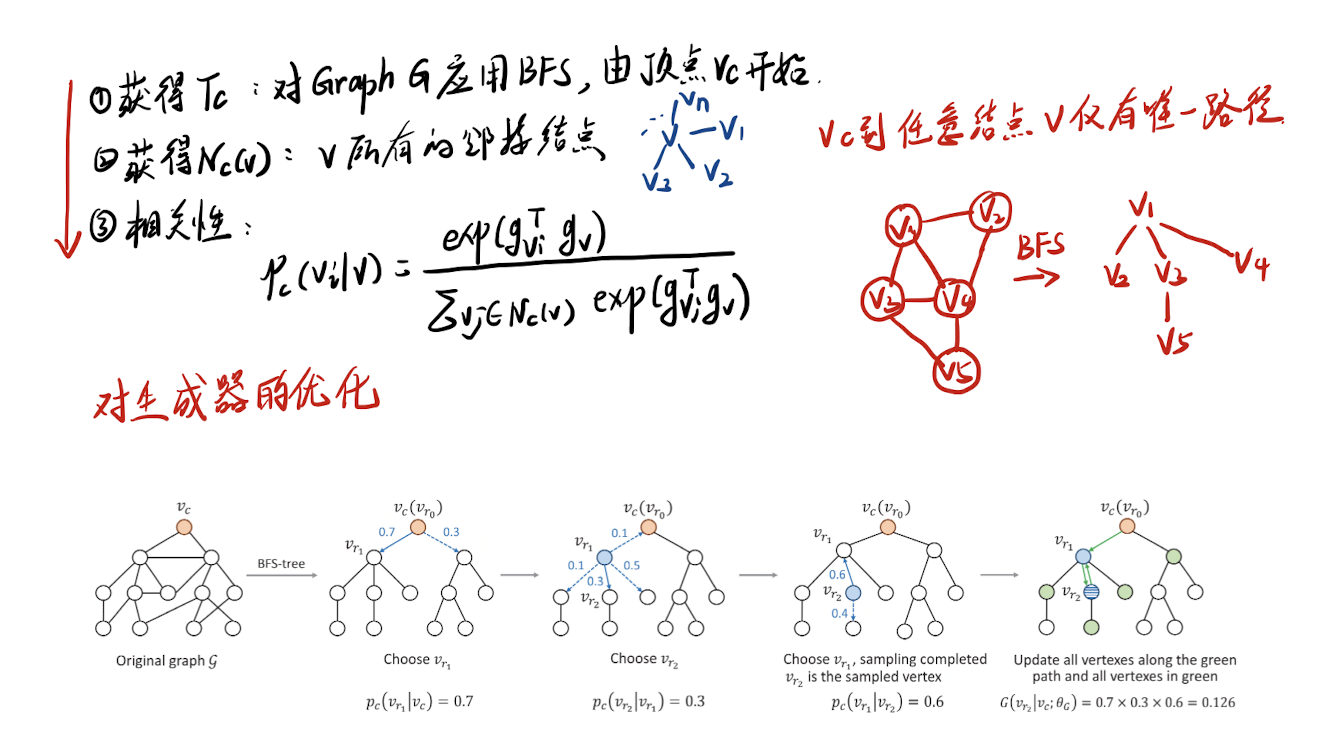 ①获得 Tc：对Graph G 应用BFS，由顶点 Vc 开始.
②获得Nc(v)：v 所有的邻接结点
Vn
V
V1
V3
V2
③相关性：
Pc(Vi|V) = exp(gᵀvi gv) / Σvj∈Nc(v) exp(gᵀvi gv)
Vc到任意结点 V 仅有唯一路径.
V1
V2
V3
V4
V5
BFS
V1
V2
V3
V4
V5
对生成器的优化
v_c
BFS-tree
Original graph 𝒢
v_c(v_r0)
0.7
0.3
v_r1
Choose v_r1
p_c(v_r1|v_c) = 0.7
v_c(v_r0)
0.1
v_r1
0.1
0.3
0.5
v_r2
Choose v_r2
p_c(v_r2|v_r1) = 0.3
v_c(v_r0)
v_r1
0.6
v_r2
0.4
Choose v_r1, sampling completed
v_r2 is the sampled vertex
p_c(v_r1|v_r2) = 0.6
v_c(v_r0)
v_r1
v_r2
Update all vertexes along the green
path and all vertexes in green
G(v_r2|v_c; θ_G) = 0.7 × 0.3 × 0.6 = 0.126